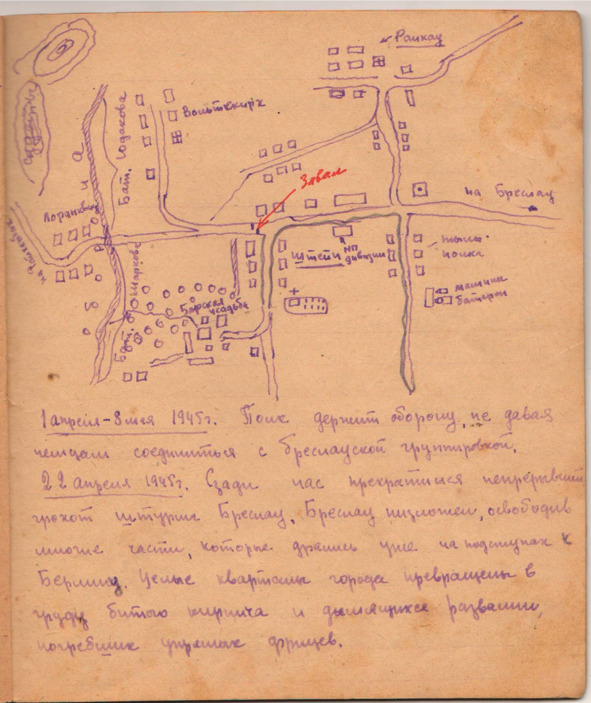 Ранкау
Вольтскирх
Бат. Чодакова
Завал
на Бреслау
Штейн
НП дивизии
тылы полка
машины батареи
Барская усадьба
Бат. Шаркова
1 апреля – 8 мая 1945 г. Полк держит оборону, не давая
немцам соединиться с бреславской группировкой.
22 апреля 1945 г. Сзади нас прекратился непрерывный
грохот штурма Бреслау. Бреслау низложен, освободив
многие части, которые дрались уже на подступах к
Берлину. Целые кварталы города превращены в
груду битого кирпича и дымящиеся развалины,
погребших упрямых фрицев.